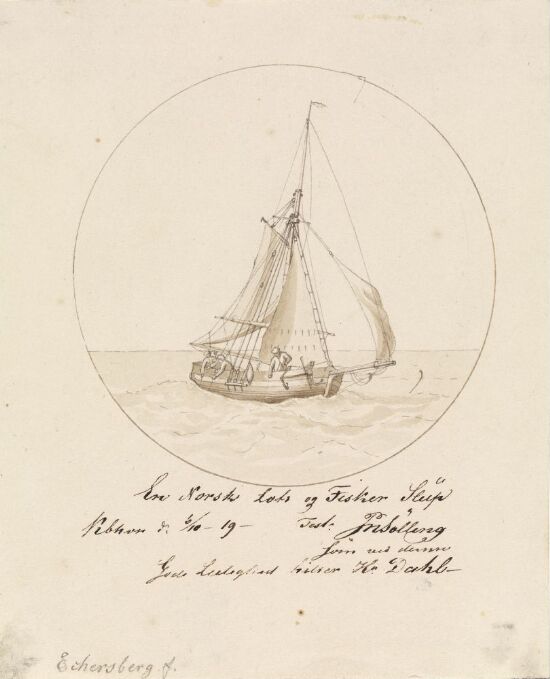 En Norsk Lots og Fisker Slup
Kbhvn d: 5/10 - 19 - Test: PN Sölling
som ved denne
Gode Leilighed hilser Hr. Dahl
Eckersberg f.